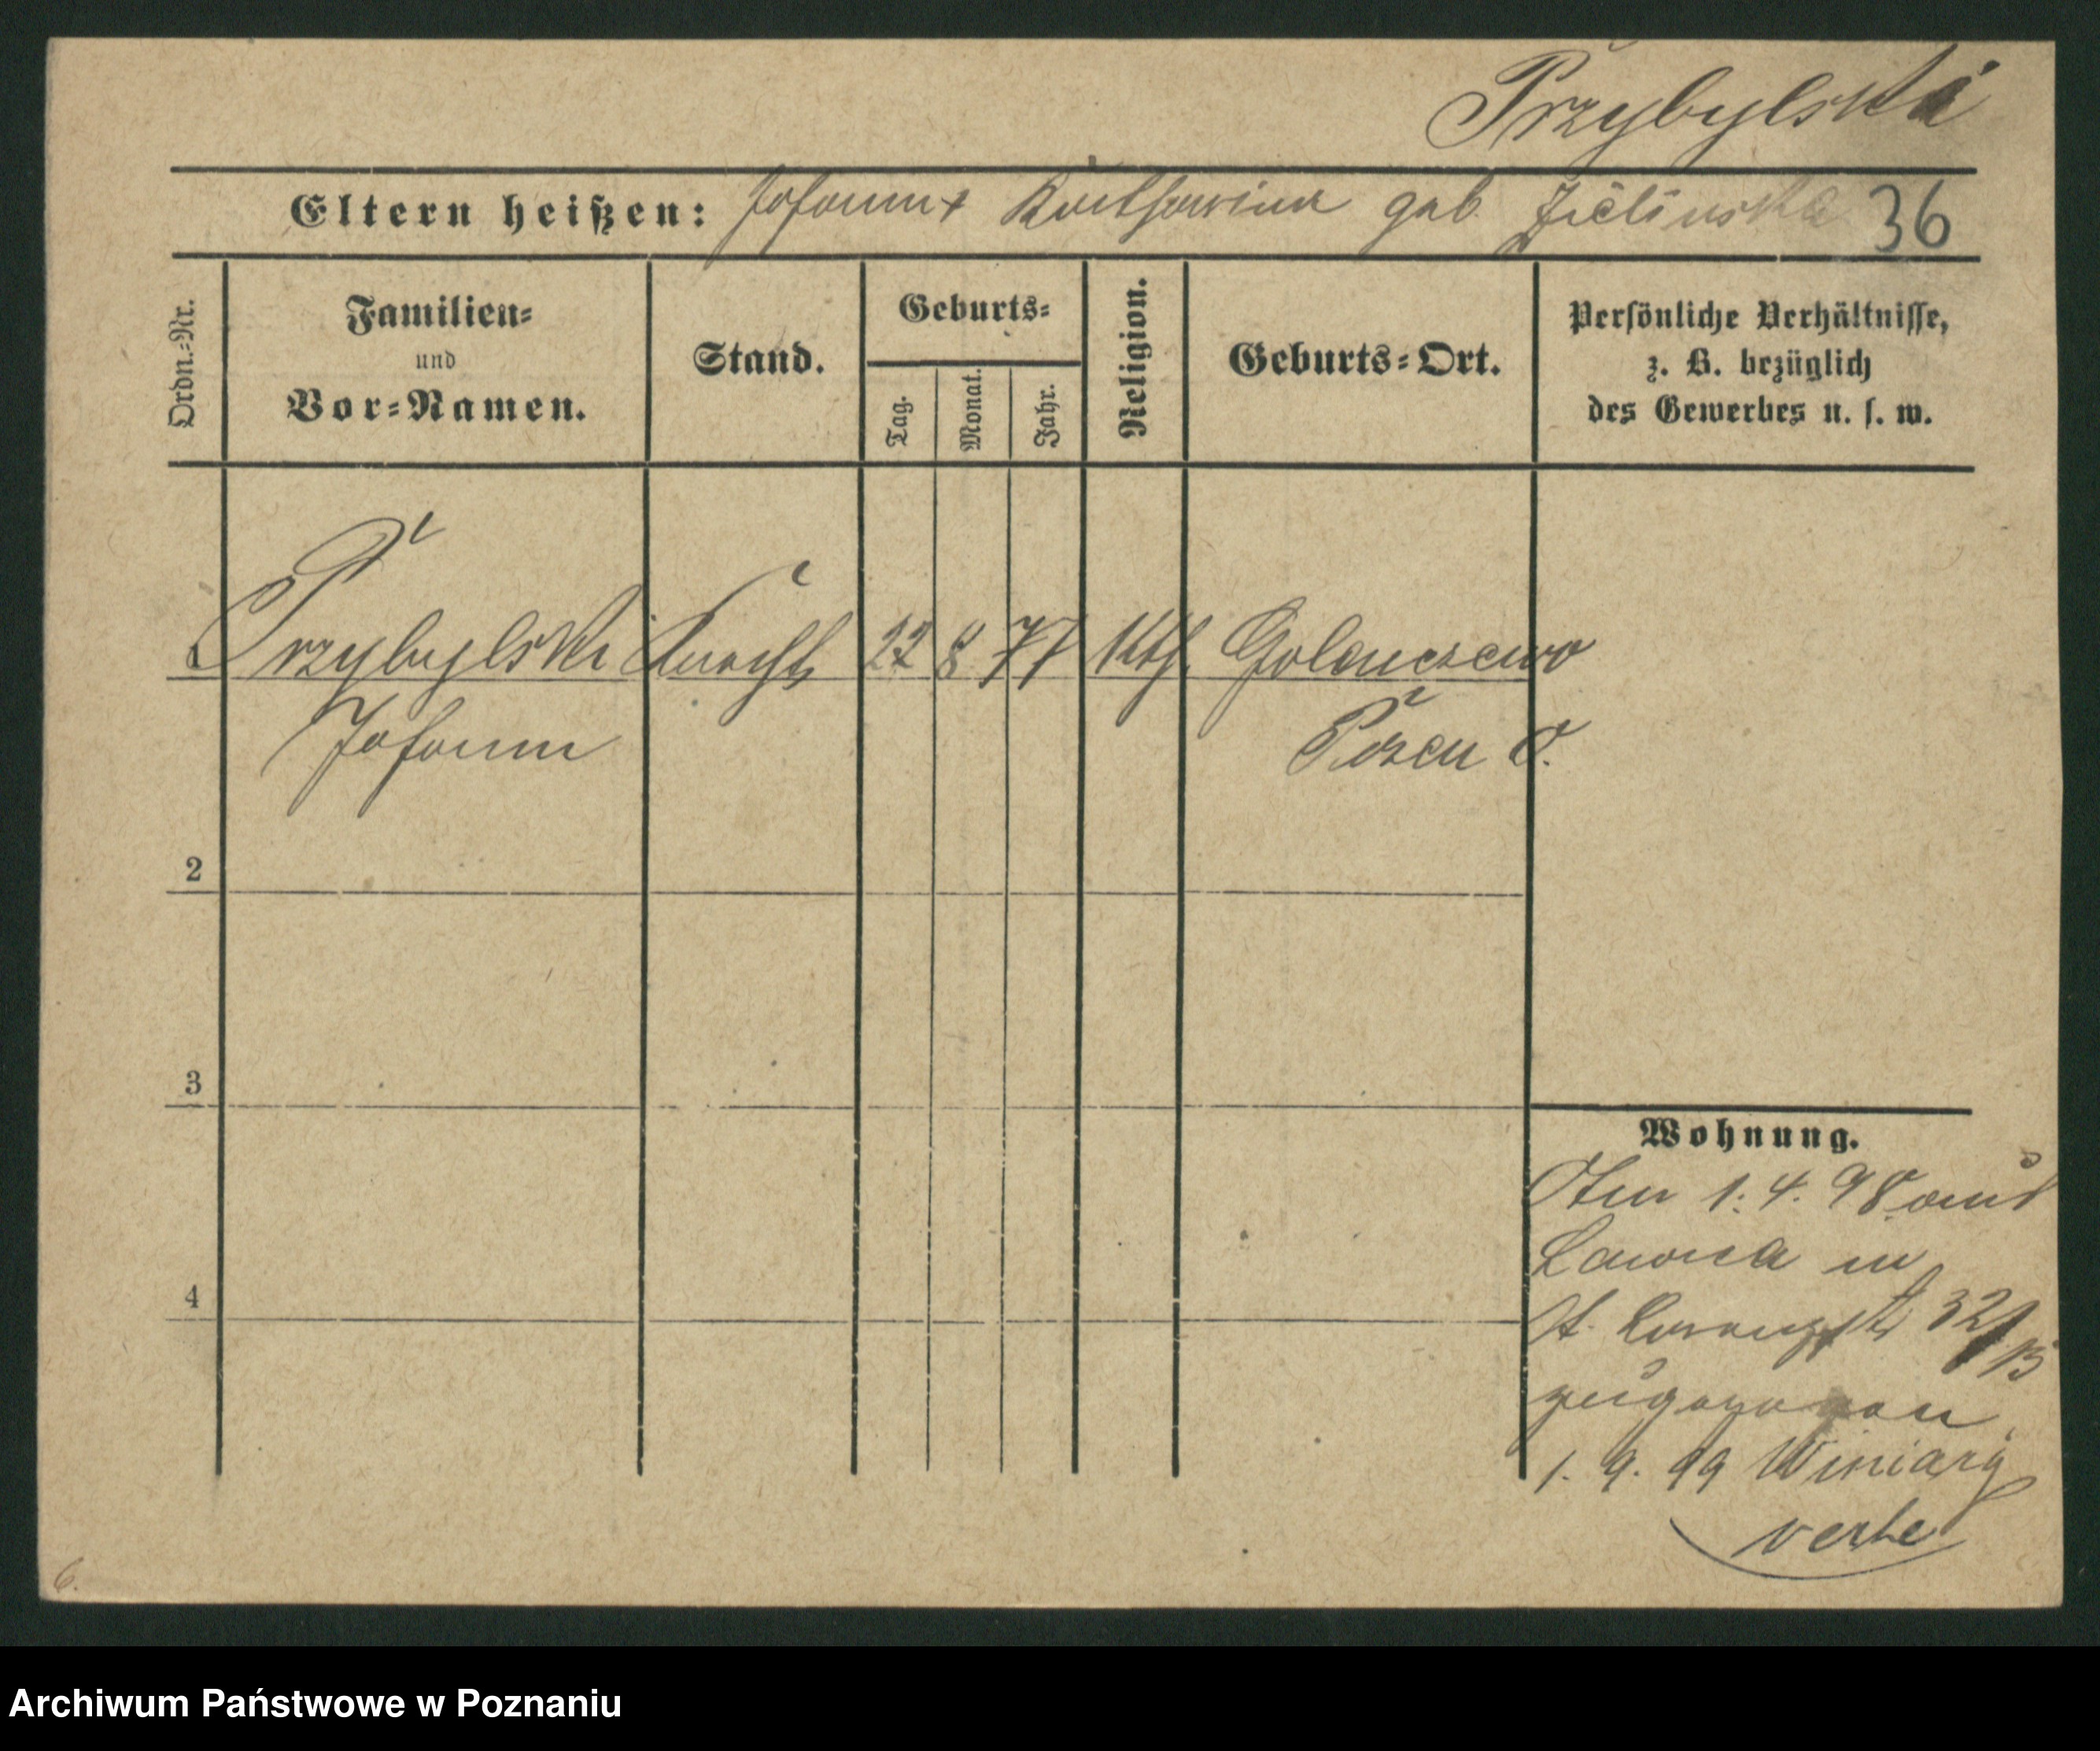 Przybylski
Eltern heißen: Johann + Katharina geb. Zielinska 36
Ordn.-Nr.
Familien-
und
Vor-Namen.
Stand.
Geburts-
Tag.
Monat.
Jahr.
Religion.
Geburts-Ort.
Persönliche Verhältnisse,
z. B. bezüglich
des Gewerbes u. s. w.
1 Przybylski Knecht 22 8 77 Kth. Golenczewo
Johann Posen O.
2
3
4
Wohnung.
1. 4. 98 aus
Lawica in
St. Lazarusstr 32
zugezogen
1. 9. 99 Winiary
verte
6.
Archiwum Państwowe w Poznaniu